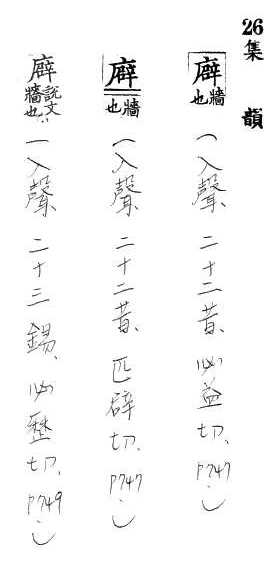 26
集韻
廦 牆也 (入聲、二十二昔、必益切、P747.)
廦 牆也 (入聲、二十二昔、匹辟切、P747.)
廦 說文:牆也 (入聲、二十三錫、必歷切、P749.)